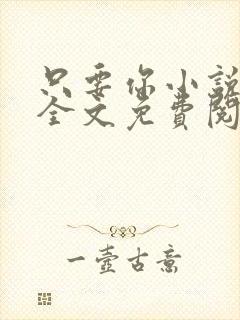 只要你小説
全文免費閱
一壺古意